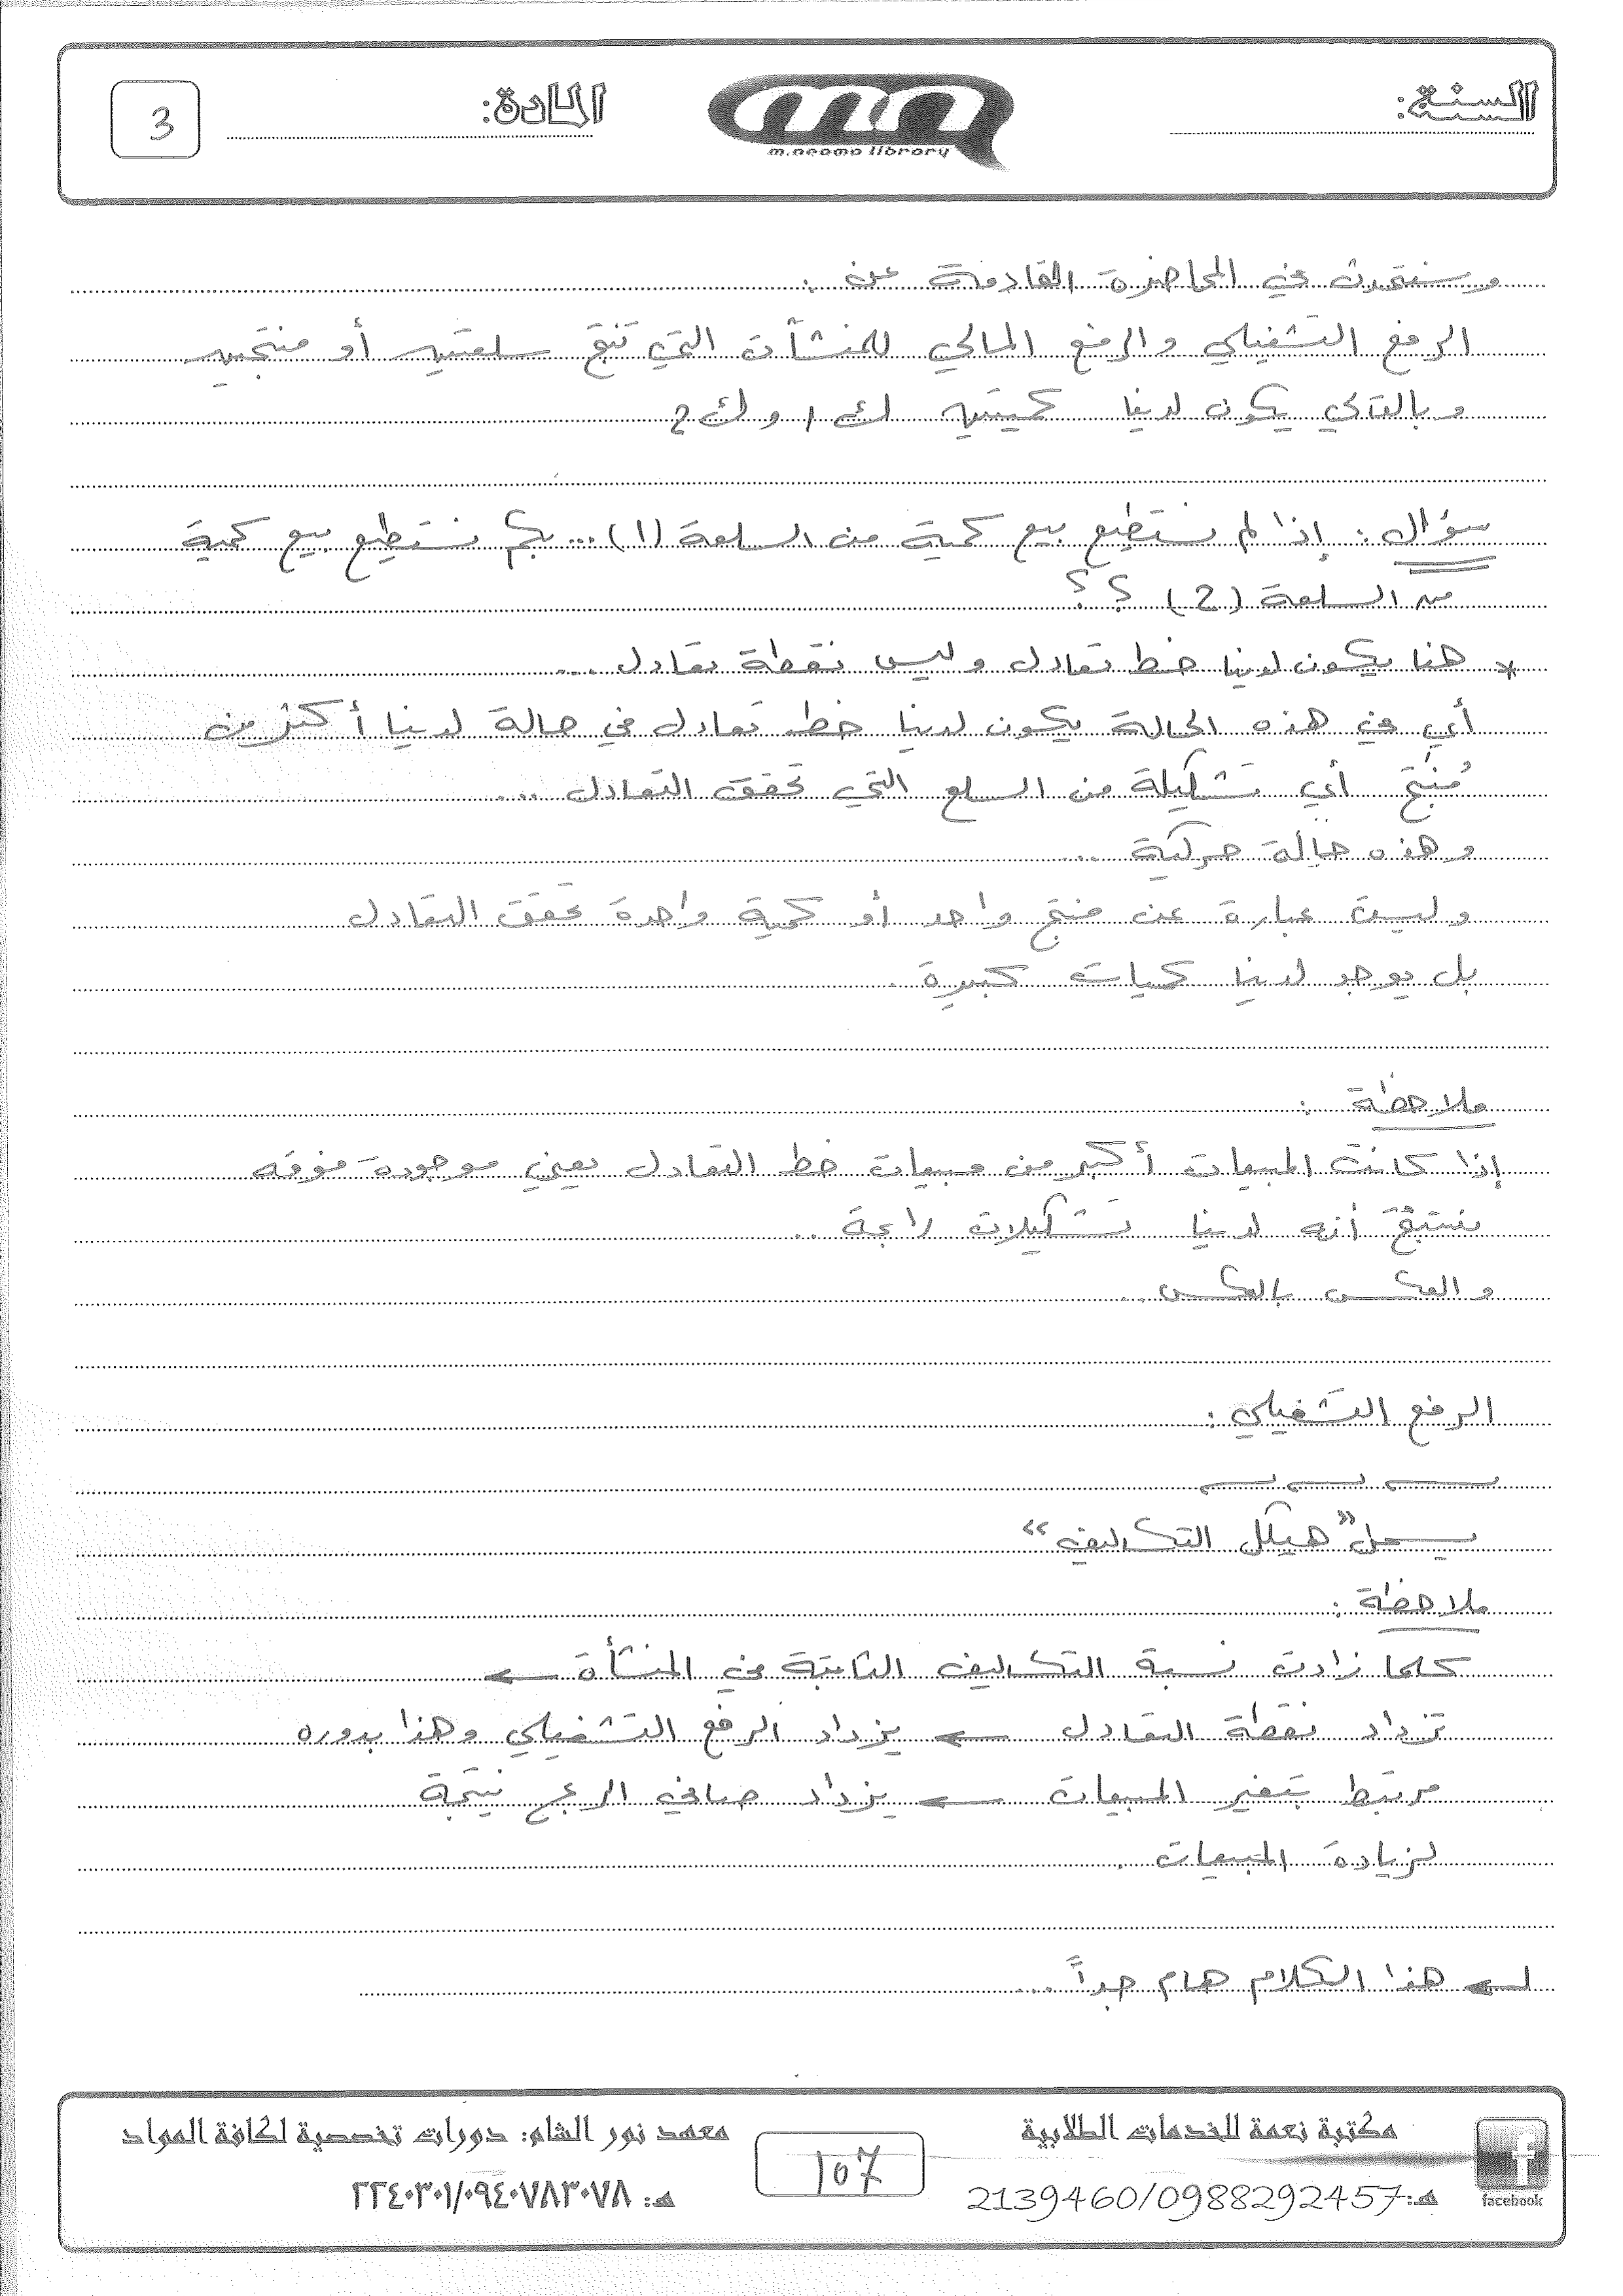 السنة:
m.neama library
المادة:
3
وسنتحدث في المحاضرة القادمة عن :
الرفع التشغيلي والرفع المالي للمنشآت التي تنتج سلعتين أو منتجين
وبالتالي يكون لدينا كميتين ك1 و ك2
سؤال : إذا لم نستطيع بيع كمية من السلعة (1) ... بكم نستطيع بيع كمية
من السلعة (2) ؟؟
* هنا يكون لدينا خط تعادل وليس نقطة تعادل ...
أي في هذه الحالة يكون لدينا خط تعادل في حالة لدينا أكثر من
مُنتَج أي تشكيلة من السلع التي تحقق التعادل ...
وهذه حالة حركية ...
وليست عبارة عن منتج واحد أو كمية واحدة تحقق التعادل
بل يوجد لدينا كميات كبيرة .
ملاحظة :
إذا كانت المبيعات أكبر من مبيعات خط التعادل يعني موجودة فوقه
نستنتج أنه لدينا تشكيلات رابحة ..
والعكس بالعكس ..
الرفع التشغيلي :
"هيكل التكاليف"
ملاحظة :
كلما زادت نسبة التكاليف الثابتة في المنشأة ←
تزداد نقطة التعادل ← يزداد الرفع التشغيلي وهذا بدوره
مرتبط بتغير المبيعات ← يزداد صافي الربح نتيجة
لزيادة المبيعات .
← هذا الكلام هام جداً ...
مكتبة نعمة للخدمات الطلابية
هـ: 2139460/0988292457
facebook
107
معهد نور الشام: دورات تخصصية لكافة المواد
هـ: ٢٢٤٠٣٠١/٠٩٤٠٧٨٣٠٧٨